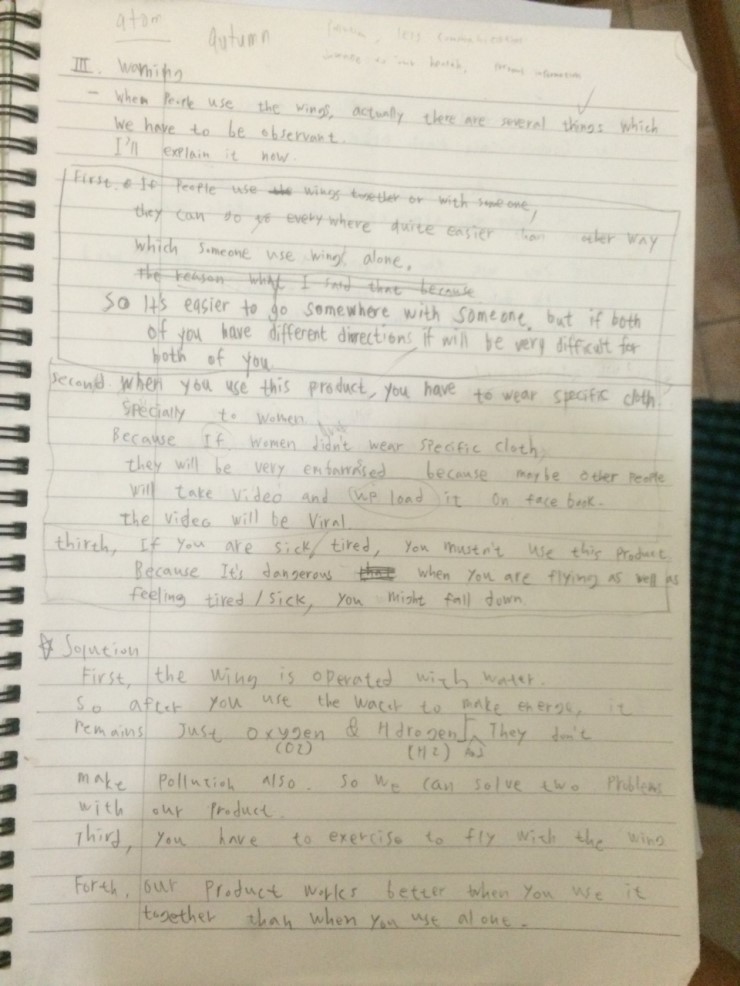 atom
autumn
less communication
III. Warning
- When People use the wings, actually there are several things which
we have to be observant.
I'll explain it now.
First. If People use the wings together or with someone,
they can go everywhere quite easier than other way
which someone use wings alone.
the reason what I said that because
So It's easier to go somewhere with someone, but if both
of you have different directions, it will be very difficult for
both of you.
Second. When you use this product, you have to wear specific cloth.
Specially to women.
Because If women didn't wear specific cloth,
they will be very embarrased because maybe other people
will take video and up load it on face book.
the video will be Viral.
thirth, If you are sick/tired, you mustn't use this product.
Because It's dangerous that when you are flying as well as
feeling tired/sick, you might fall down
☆ Solution
First, the wing is operated with water.
So after you use the water to make energe, it
remains Just oxygen & Hdrogen. They don't
(O2) (H2)
make pollution also. So we can solve two problems
with our product.
Third, you have to exercise to fly with the wing
Forth, our product works better when you use it
together than when you use alone.